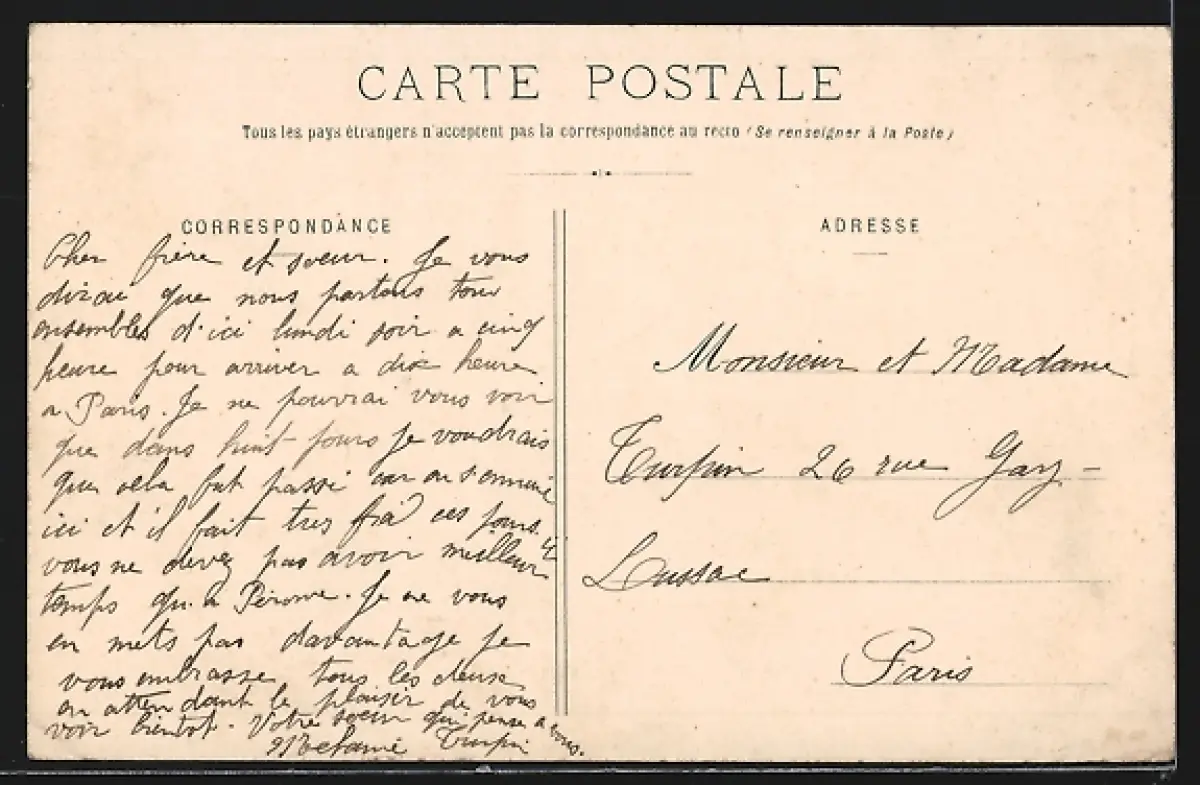 CARTE POSTALE
Tous les pays étrangers n'acceptent pas la correspondance au recto (Se renseigner à la Poste)
CORRESPONDANCE
Cher frère et soeur. Je vous
dirai que nous partons tous
ensembles d'ici lundi soir a cinq
heure pour arriver a dix heure
a Paris. Je ne pouvrai vous voir
que dans huit jours je voudrais
que cela fut passé car on s'ennuie
ici et il fait tres froid ces jours.
vous ne devez pas avoir meilleur
temps qu'a Péronne. Je ne vous
en mets pas davantage je
vous embrasse tous les deux
en attendant le plaisir de vous
voir bientot. Votre soeur qui pense a vous.
Melanie Turpin
ADRESSE
Monsieur et Madame
Turpin 26 rue Gay-
Lussac
Paris